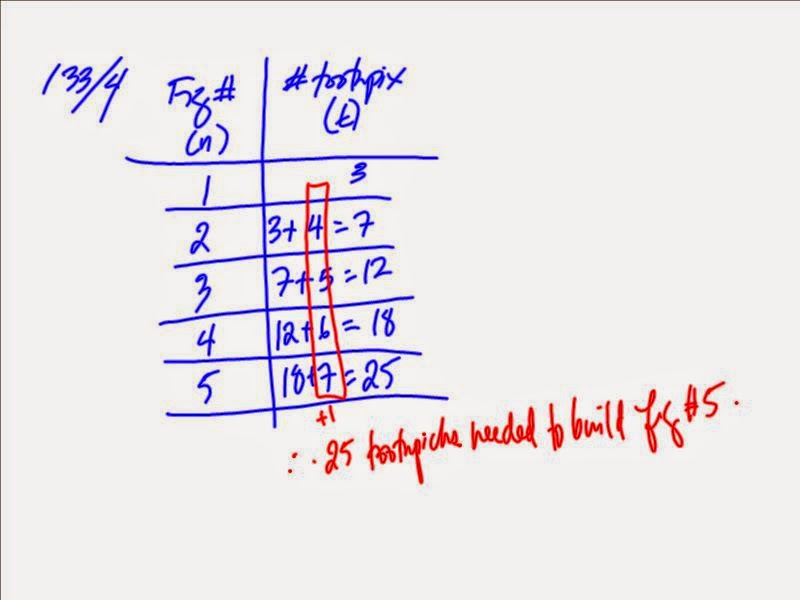 133/4
Fig # # toothpix
(n) (t)
1 3
2 3+4=7
3 7+5=12
4 12+6=18
5 18+7=25
+1
∴ 25 toothpicks needed to build fig #5.